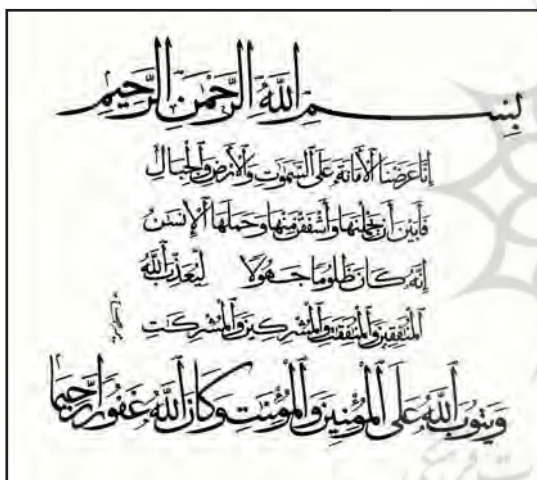 بِسْمِ اللَّهِ الرَّحْمَٰنِ الرَّحِيمِ
إِنَّا عَرَضْنَا الْأَمَانَةَ عَلَى السَّمَٰوَٰتِ وَالْأَرْضِ وَالْجِبَالِ
فَأَبَيْنَ أَنْ يَحْمِلْنَهَا وَأَشْفَقْنَ مِنْهَا وَحَمَلَهَا الْإِنسَٰنُ
إِنَّهُ كَانَ ظَلُومًا جَهُولًا لِيُعَذِّبَ اللَّهُ
الْمُنَٰفِقِينَ وَالْمُنَٰفِقَٰتِ وَالْمُشْرِكِينَ وَالْمُشْرِكَٰتِ
وَيَتُوبَ اللَّهُ عَلَى الْمُؤْمِنِينَ وَالْمُؤْمِنَٰتِ وَكَانَ اللَّهُ غَفُورًا رَحِيمًا